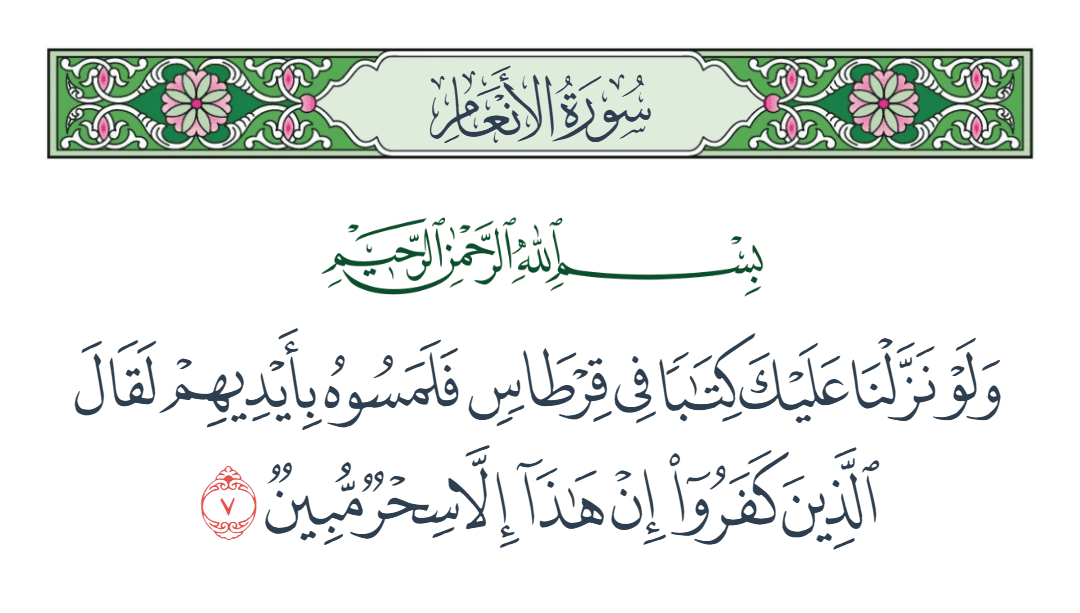 سُورَةُ الأَنْعَامِ
بِسْمِ ٱللَّهِ ٱلرَّحْمَٰنِ ٱلرَّحِيمِ
وَلَوْ نَزَّلْنَا عَلَيْكَ كِتَٰبًا فِى قِرْطَاسٍ فَلَمَسُوهُ بِأَيْدِيهِمْ لَقَالَ
ٱلَّذِينَ كَفَرُوٓا۟ إِنْ هَٰذَآ إِلَّا سِحْرٌ مُّبِينٌ ٧